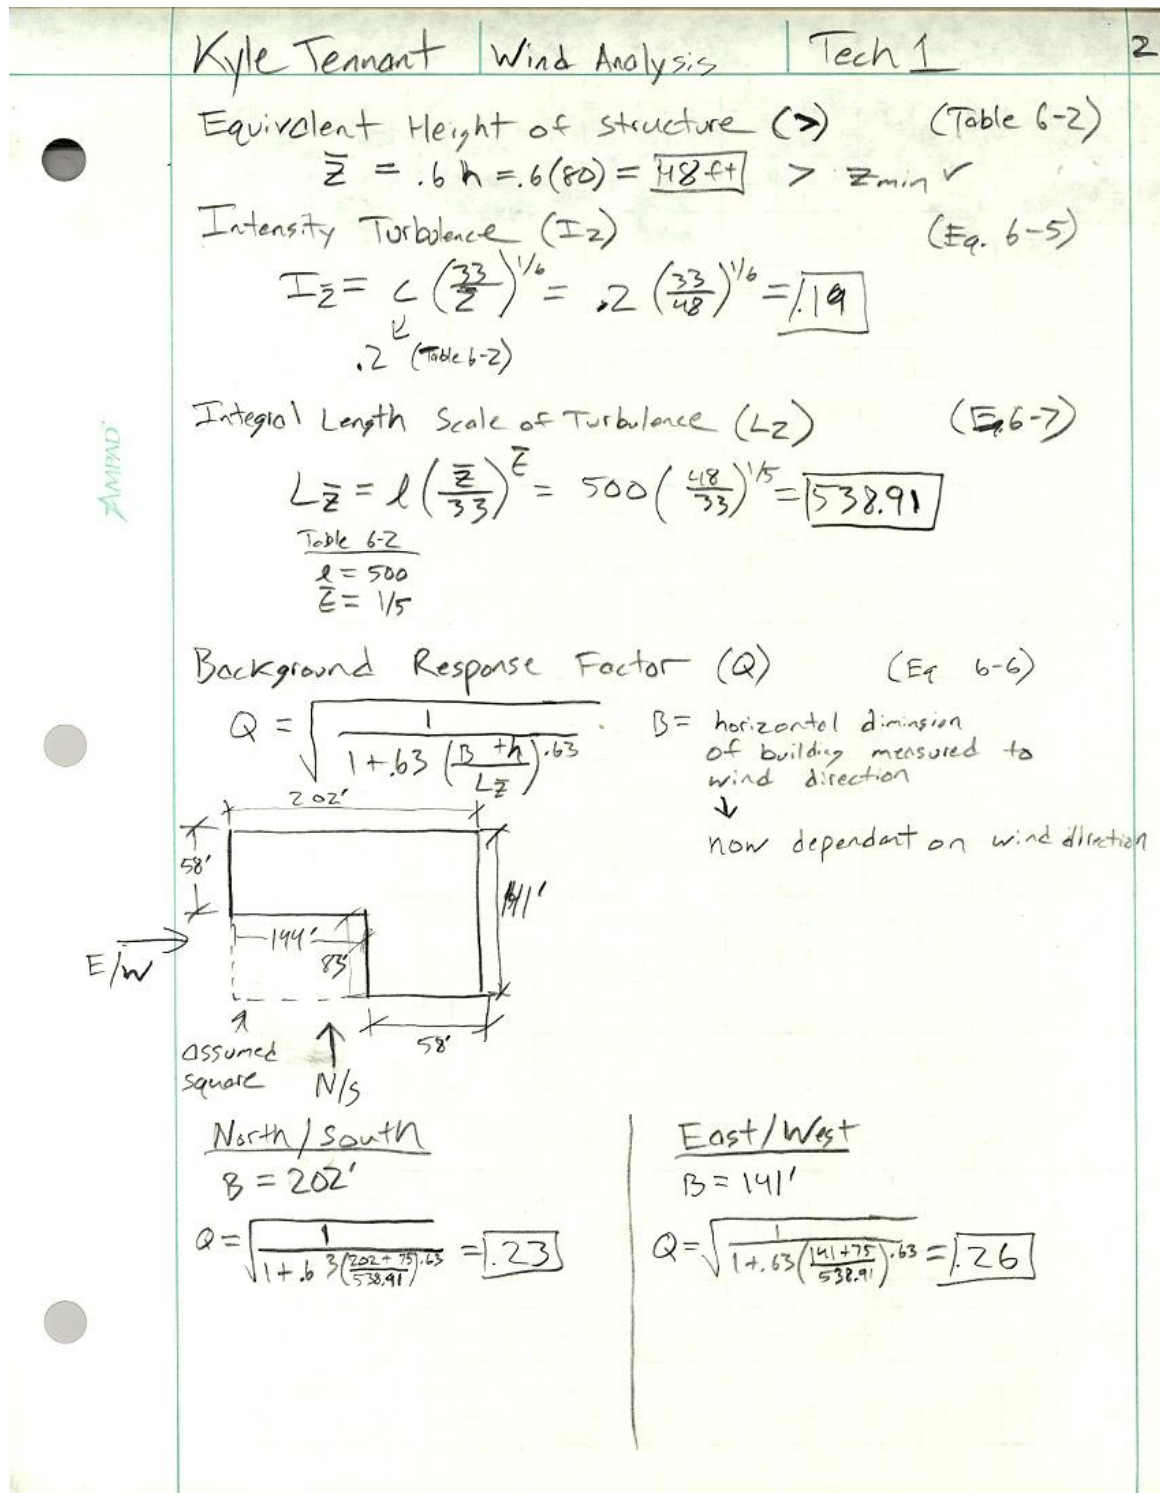 Kyle Tennant | Wind Analysis | Tech 1 2
Equivalent Height of structure (>) (Table 6-2)
z̄ = .6 h = .6(80) = 48 ft > zmin ✓
Intensity Turbulence (Iz) (Eq. 6-5)
I z̄ = c (33/z̄)^1/6 = .2 (33/48)^1/6 = .19
.2 (Table 6-2)
Integral Length Scale of Turbulence (Lz) (Eq. 6-7)
L z̄ = l (z̄/33)^Ē = 500 (48/33)^1/5 = 538.91
Table 6-2
l = 500
Ē = 1/5
AMPAD
Background Response Factor (Q) (Eq 6-6)
Q = √(1/(1+.63 ((B+h)/L z̄)^.63))
B = horizontal diminsion
of building measured to
wind direction
↓
now dependant on wind direction
202'
58'
141'
144'
83'
E/W
58'
assumed
square
N/S
North/South
B = 202'
Q = √(1/(1+.63((202+75)/538.91)^.63)) = .23
East/West
B = 141'
Q = √(1/(1+.63((141+75)/538.91)^.63)) = .26